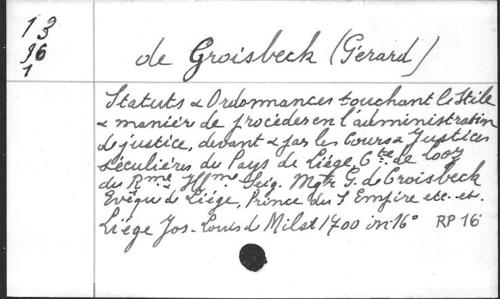 13
36
1
de Groisbeck (Gérard)
Statuts & Ordonnances touchant le Stile
& manière de procéder en l'administration
de justice, devant & par les Cours & Justices
séculières du Pays de Liége, Cté de Looz
du Rme Illme Seig. Mgtr G. de Groisbeck
Evêque de Liége, Prince du S Empire etc. et.
Liége Jos. Louis de Milst 1700 in 16° RP 16